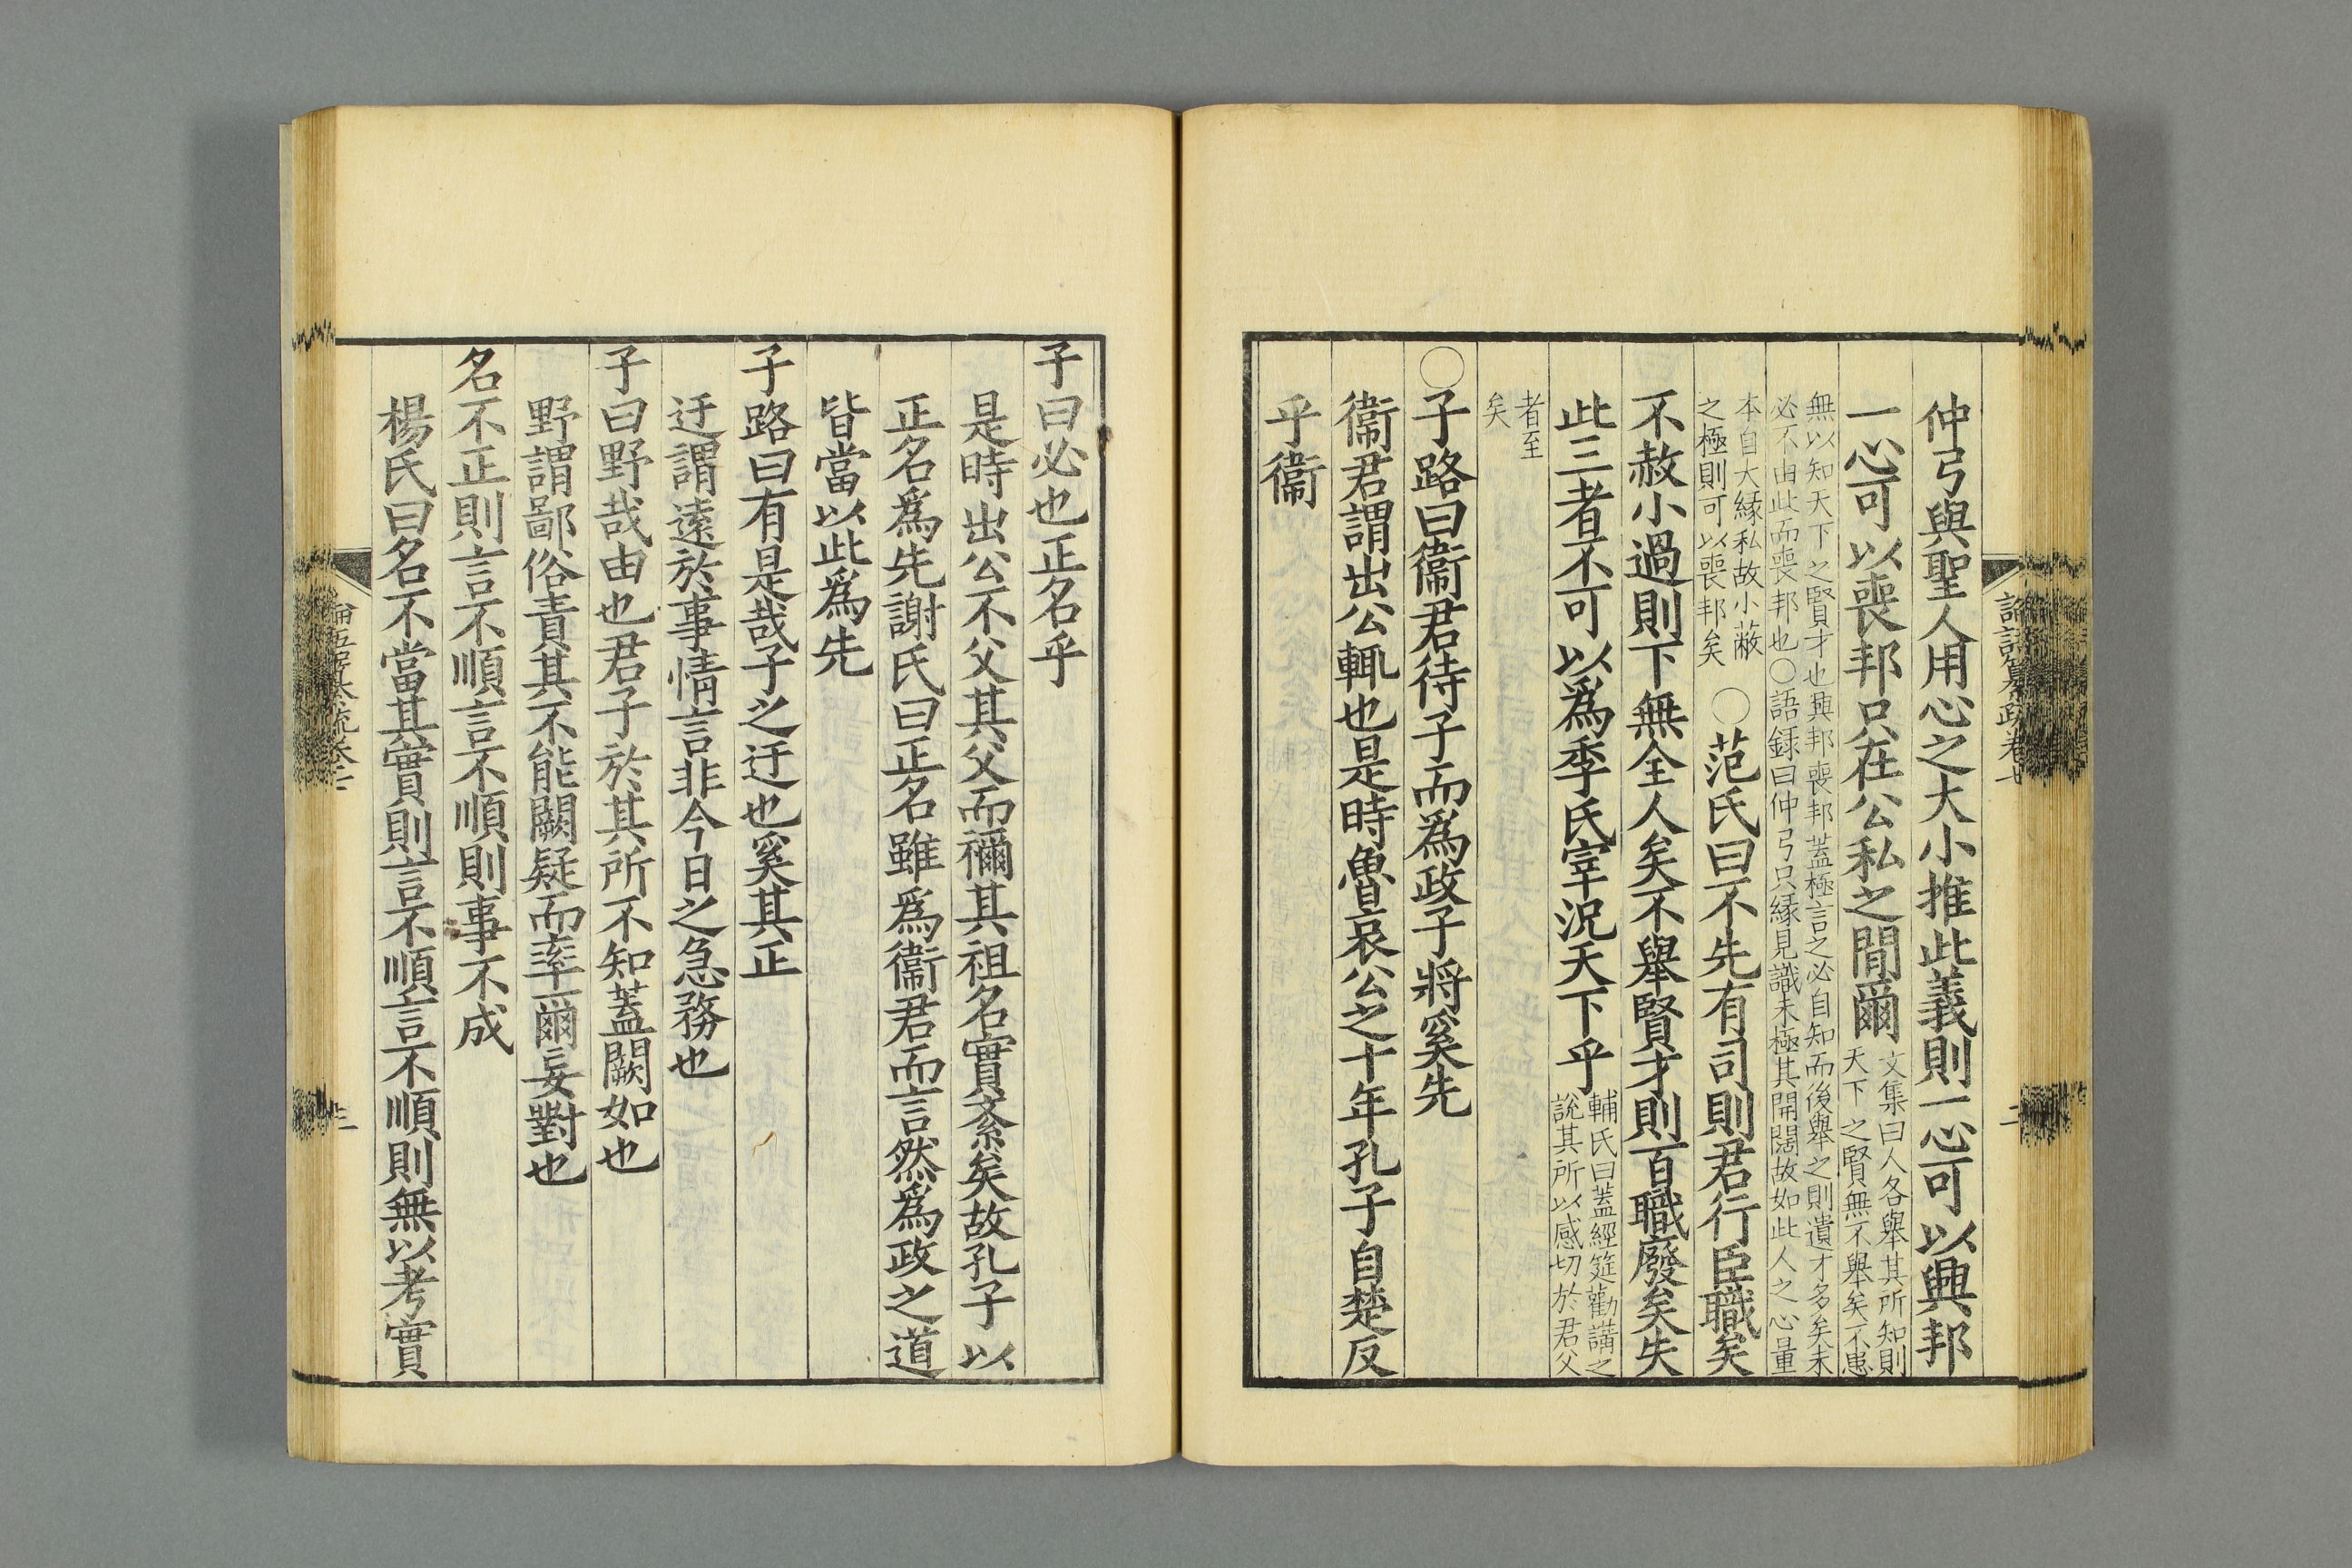 仲弓與聖人用心之大小推此義則一心可以興邦
一心可以喪邦只在公私之間爾
文集曰人各舉其所知則
天下之賢無不舉矣不患
無以知天下之賢才也興邦喪邦蓋極言之必自知而後舉之則遺才多矣未
必不由此而喪邦也○語録曰仲弓只緣見識未極其開闊故如此人之心量
本自大緣私故小蔽
之極則可以喪邦矣
○范氏曰不先有司則君行臣職矣
不赦小過則下無全人矣不舉賢才則百職廢矣失
此三者不可以爲季氏宰況天下乎
輔氏曰蓋經筵勸講之
說其所以感切於君父
者至
矣
○子路曰衞君待子而爲政子將奚先
衞君謂出公輒也是時魯哀公之十年孔子自楚反
乎衞
子曰必也正名乎
是時出公不父其父而禰其祖名實紊矣故孔子以
正名爲先謝氏曰正名雖爲衞君而言然爲政之道
皆當以此爲先
子路曰有是哉子之迂也奚其正
迂謂遠於事情言非今日之急務也
子曰野哉由也君子於其所不知蓋闕如也
野謂鄙俗責其不能闕疑而率爾妄對也
名不正則言不順言不順則事不成
楊氏曰名不當其實則言不順言不順則無以考實